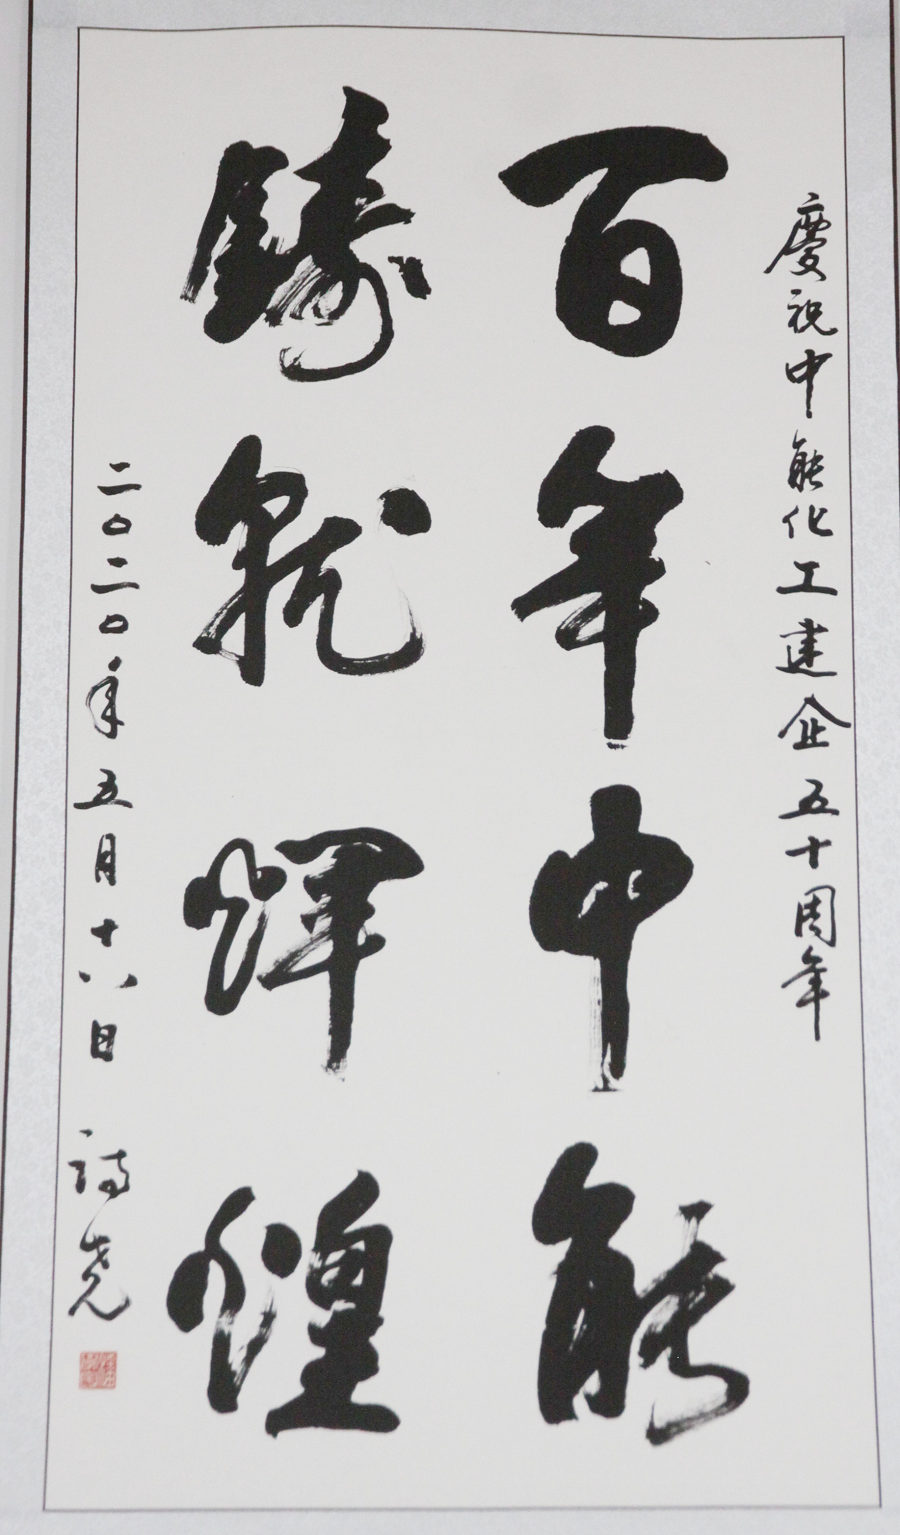 慶祝中能化工建企五十周年
百年中能
鑄就輝煌
二〇二〇年五月十八日 詩堯